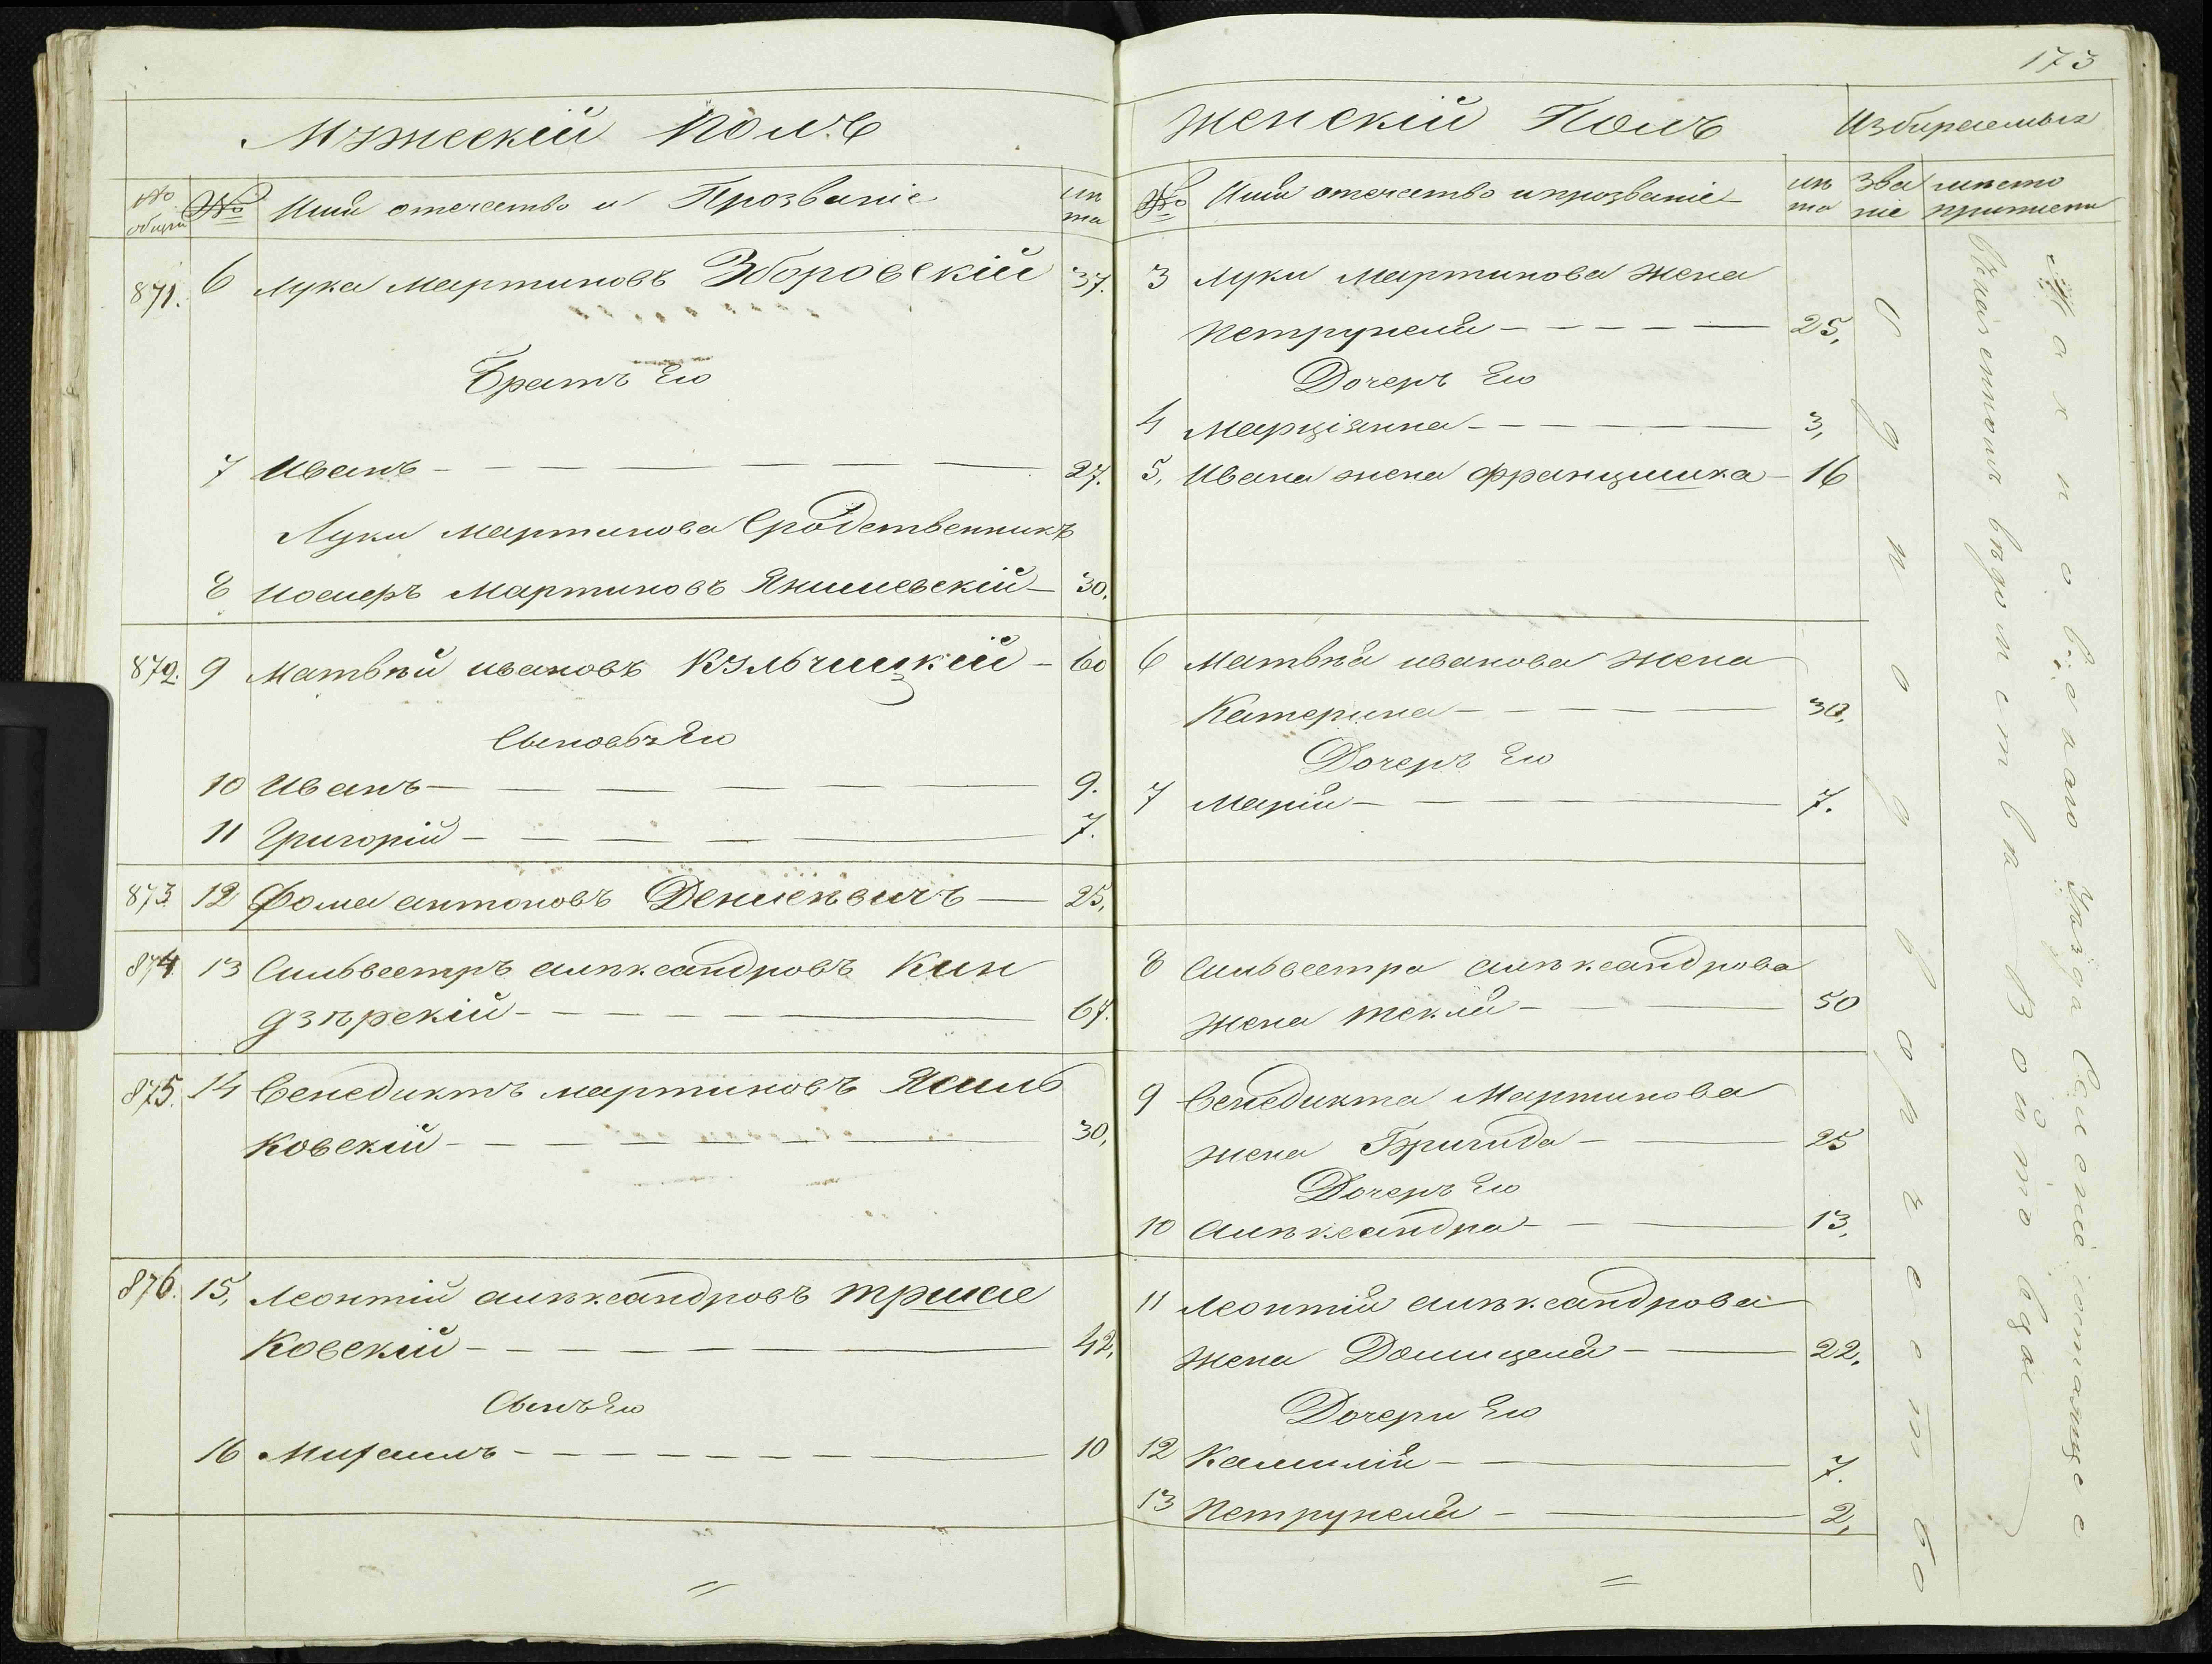 173
Мужескій Полъ
№ общій
№
Имя отечество и Прозваніе
лѣта
871. 6 Лука Мартиновъ Зборовскій 37.
Братъ Его
7 Иванъ 27.
Луки Мартинова Сродственникъ
8 Иосифъ Мартиновъ Янишевскій 30.
872. 9 Матвѣй ивановъ Кульчицкій 60
Сыновья Его
10 Иванъ 9.
11 Григорій 7.
873 12 Фома антоновъ 25,
874 13 Сильвестръ алѣксандровъ Кин
дзѣрскій 67.
875. 14 Венедиктъ мартиновъ Ясинь
Ковскій 30,
876. 15, Леонтій алѣксандровъ
Ковскій 42,
Сынъ Его
16 Михаилъ 10
Женскій Полъ
Избираемыя
№
Имя отечество и прозваніе
лѣта
зва
ніе
мѣсто
приписки
3 Луки Мартинова жена
Петрунеля 25,
Дочеръ Его
4 Марціянна 3,
5, Ивана жена Францишка 16
6 Матвѣя иванова жена
Катерина 30,
Дочеръ Его
7 Марія 7.
8 Сильвестра алѣксандрова
жена текля 50
9 Венедикта Мартинова
жена Бригида 25
Дочеръ Его
10 Алѣксандра 13,
11 Леонтія алѣксандрова
жена Домицеля 22,
Дочери Его
12 Камилія 7.
13 Петрунеля 2,
Однодворчество
Махновскаго Уѣзда Селеніе состоящее